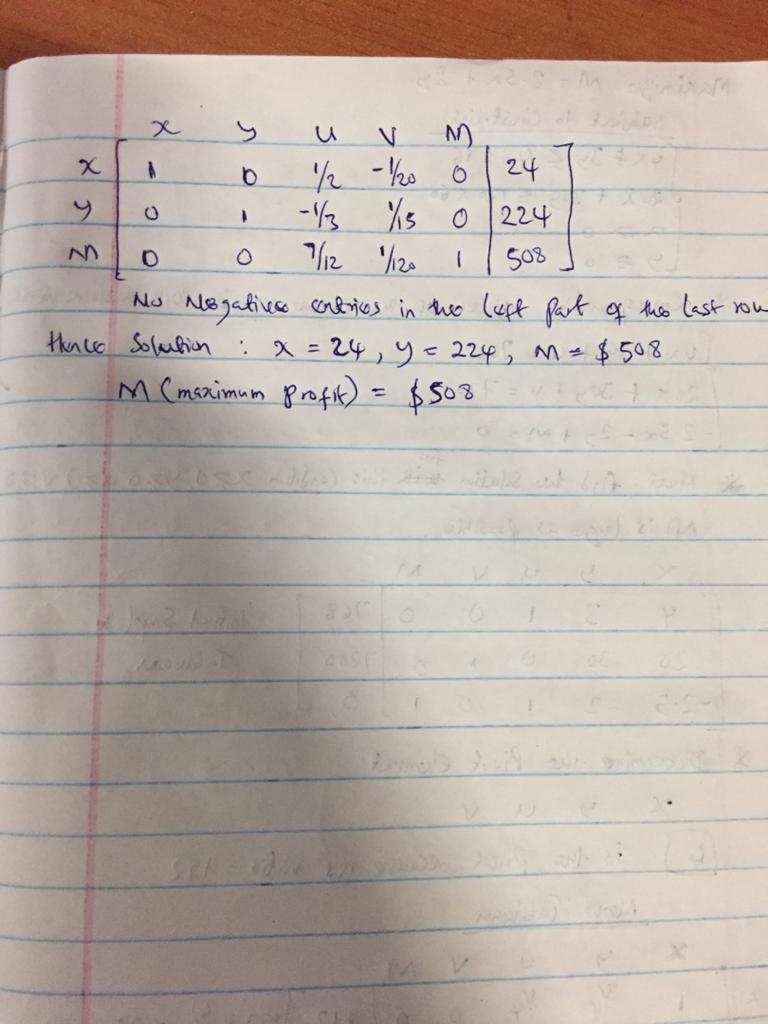 x y u v M
x 1 0 1/2 -1/20 0 24
y 0 1 -1/3 1/15 0 224
M 0 0 7/12 1/120 1 508
No Negative entries in the left part of the last row
Hence Solution : x = 24, y = 224, M = $508
M (maximum profit) = $508